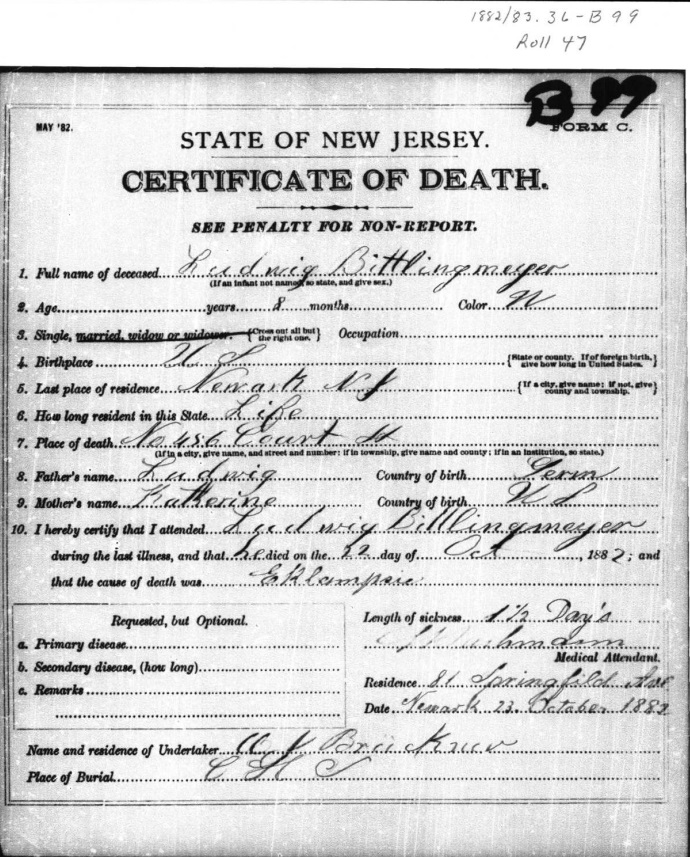 1882/83. 36-B99
Roll 47
B 99
MAY '82.
FORM C.
STATE OF NEW JERSEY.
CERTIFICATE OF DEATH.
SEE PENALTY FOR NON-REPORT.
1. Full name of deceased Ludwig Bittlingmeyer
(If an infant not named, so state, and give sex.)
2. Age years 8 months. Color W
3. Single, married, widow or widower. {Cross out all but the right one.} Occupation
4. Birthplace U S {State or county. If of foreign birth, give how long in United States.}
5. Last place of residence Newark N J {If a city, give name; if not, give county and township.}
6. How long resident in this State Life
7. Place of death No 486 Court St
(If in a city, give name, and street and number; if in township, give name and county; if in an institution, so state.)
8. Father's name Ludwig Country of birth Germ
9. Mother's name Katherine Country of birth U S
10. I hereby certify that I attended Ludwig Bittlingmeyer
during the last illness, and that he died on the 22 day of Oct, 1882; and
that the cause of death was Eklampsie
Requested, but Optional.
a. Primary disease
b. Secondary disease, (how long)
c. Remarks
Length of sickness 1½ Day's
Medical Attendant.
Residence 81 Springfild Ave
Date Newark 23 October 1882
Name and residence of Undertaker
Place of Burial